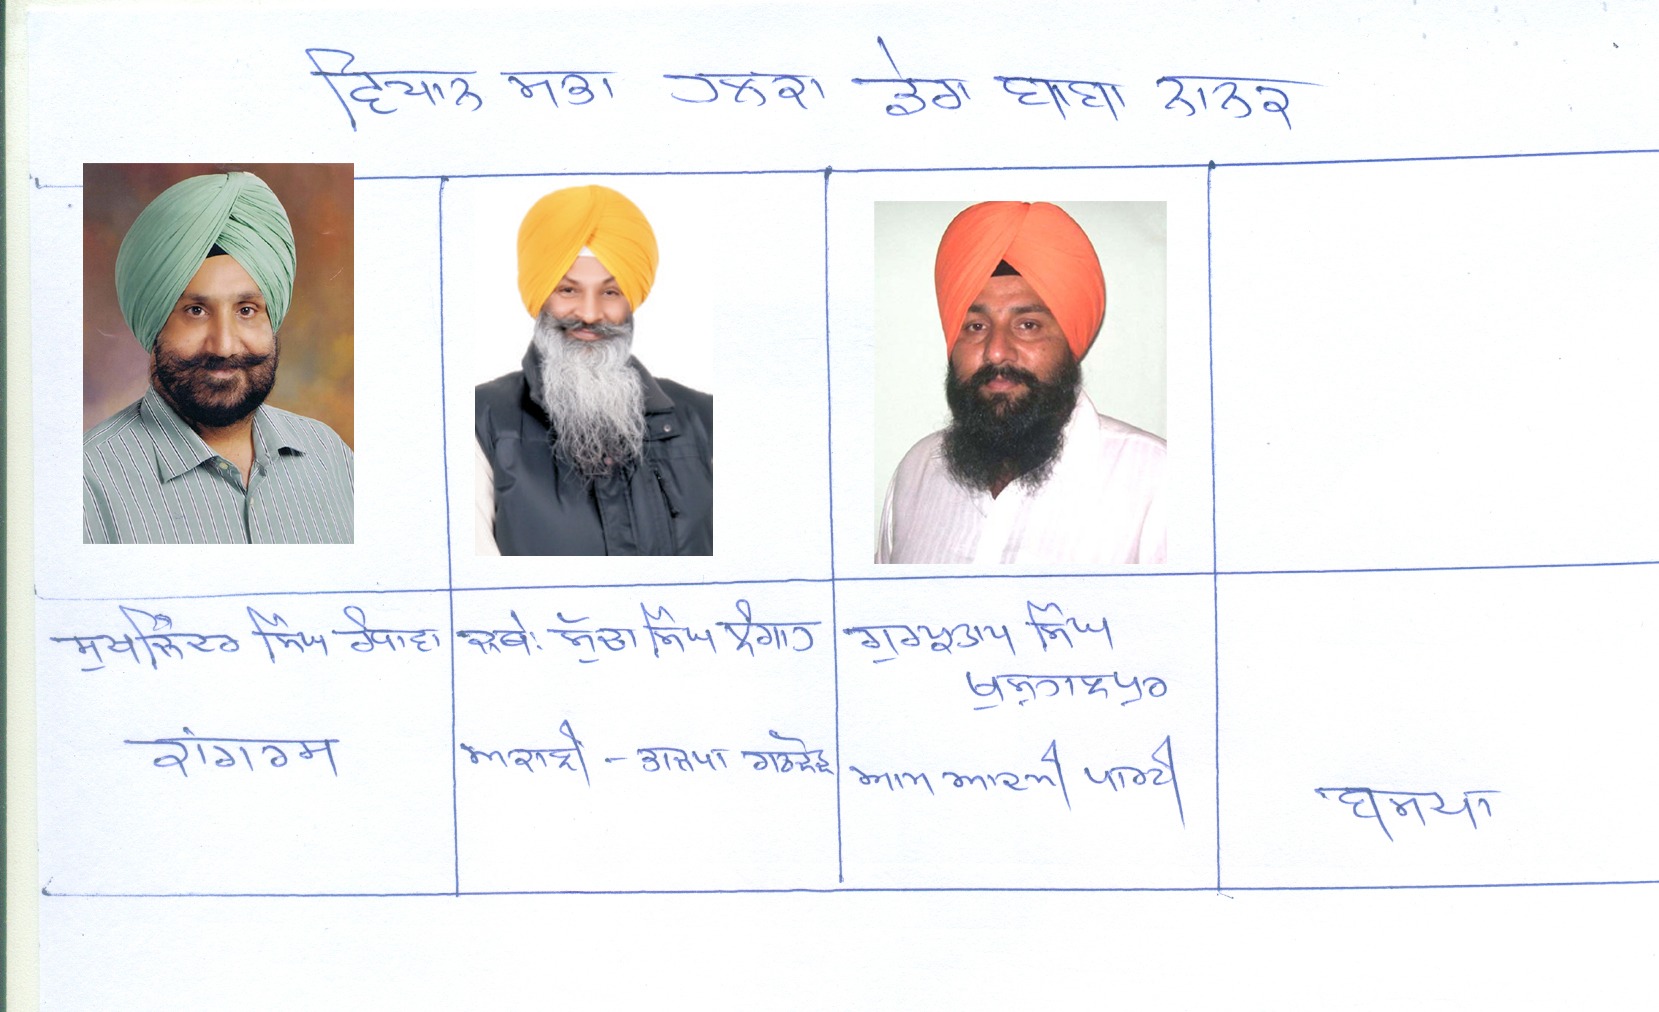 ਵਿਧਾਨ ਸਭਾ ਹਲਕਾ ਡੇਰਾ ਬਾਬਾ ਨਾਨਕ
ਸੁਖਜਿੰਦਰ ਸਿੰਘ ਰੰਧਾਵਾ
ਕਾਂਗਰਸ
ਜਥੇ: ਸੁੱਚਾ ਸਿੰਘ ਲੰਗਾਹ
ਅਕਾਲੀ - ਭਾਜਪਾ ਗਠਜੋੜ
ਗੁਰਪ੍ਰਤਾਪ ਸਿੰਘ
ਖੁਸ਼ਹਾਲਪੁਰ
ਆਮ ਆਦਮੀ ਪਾਰਟੀ
ਬਸਪਾ